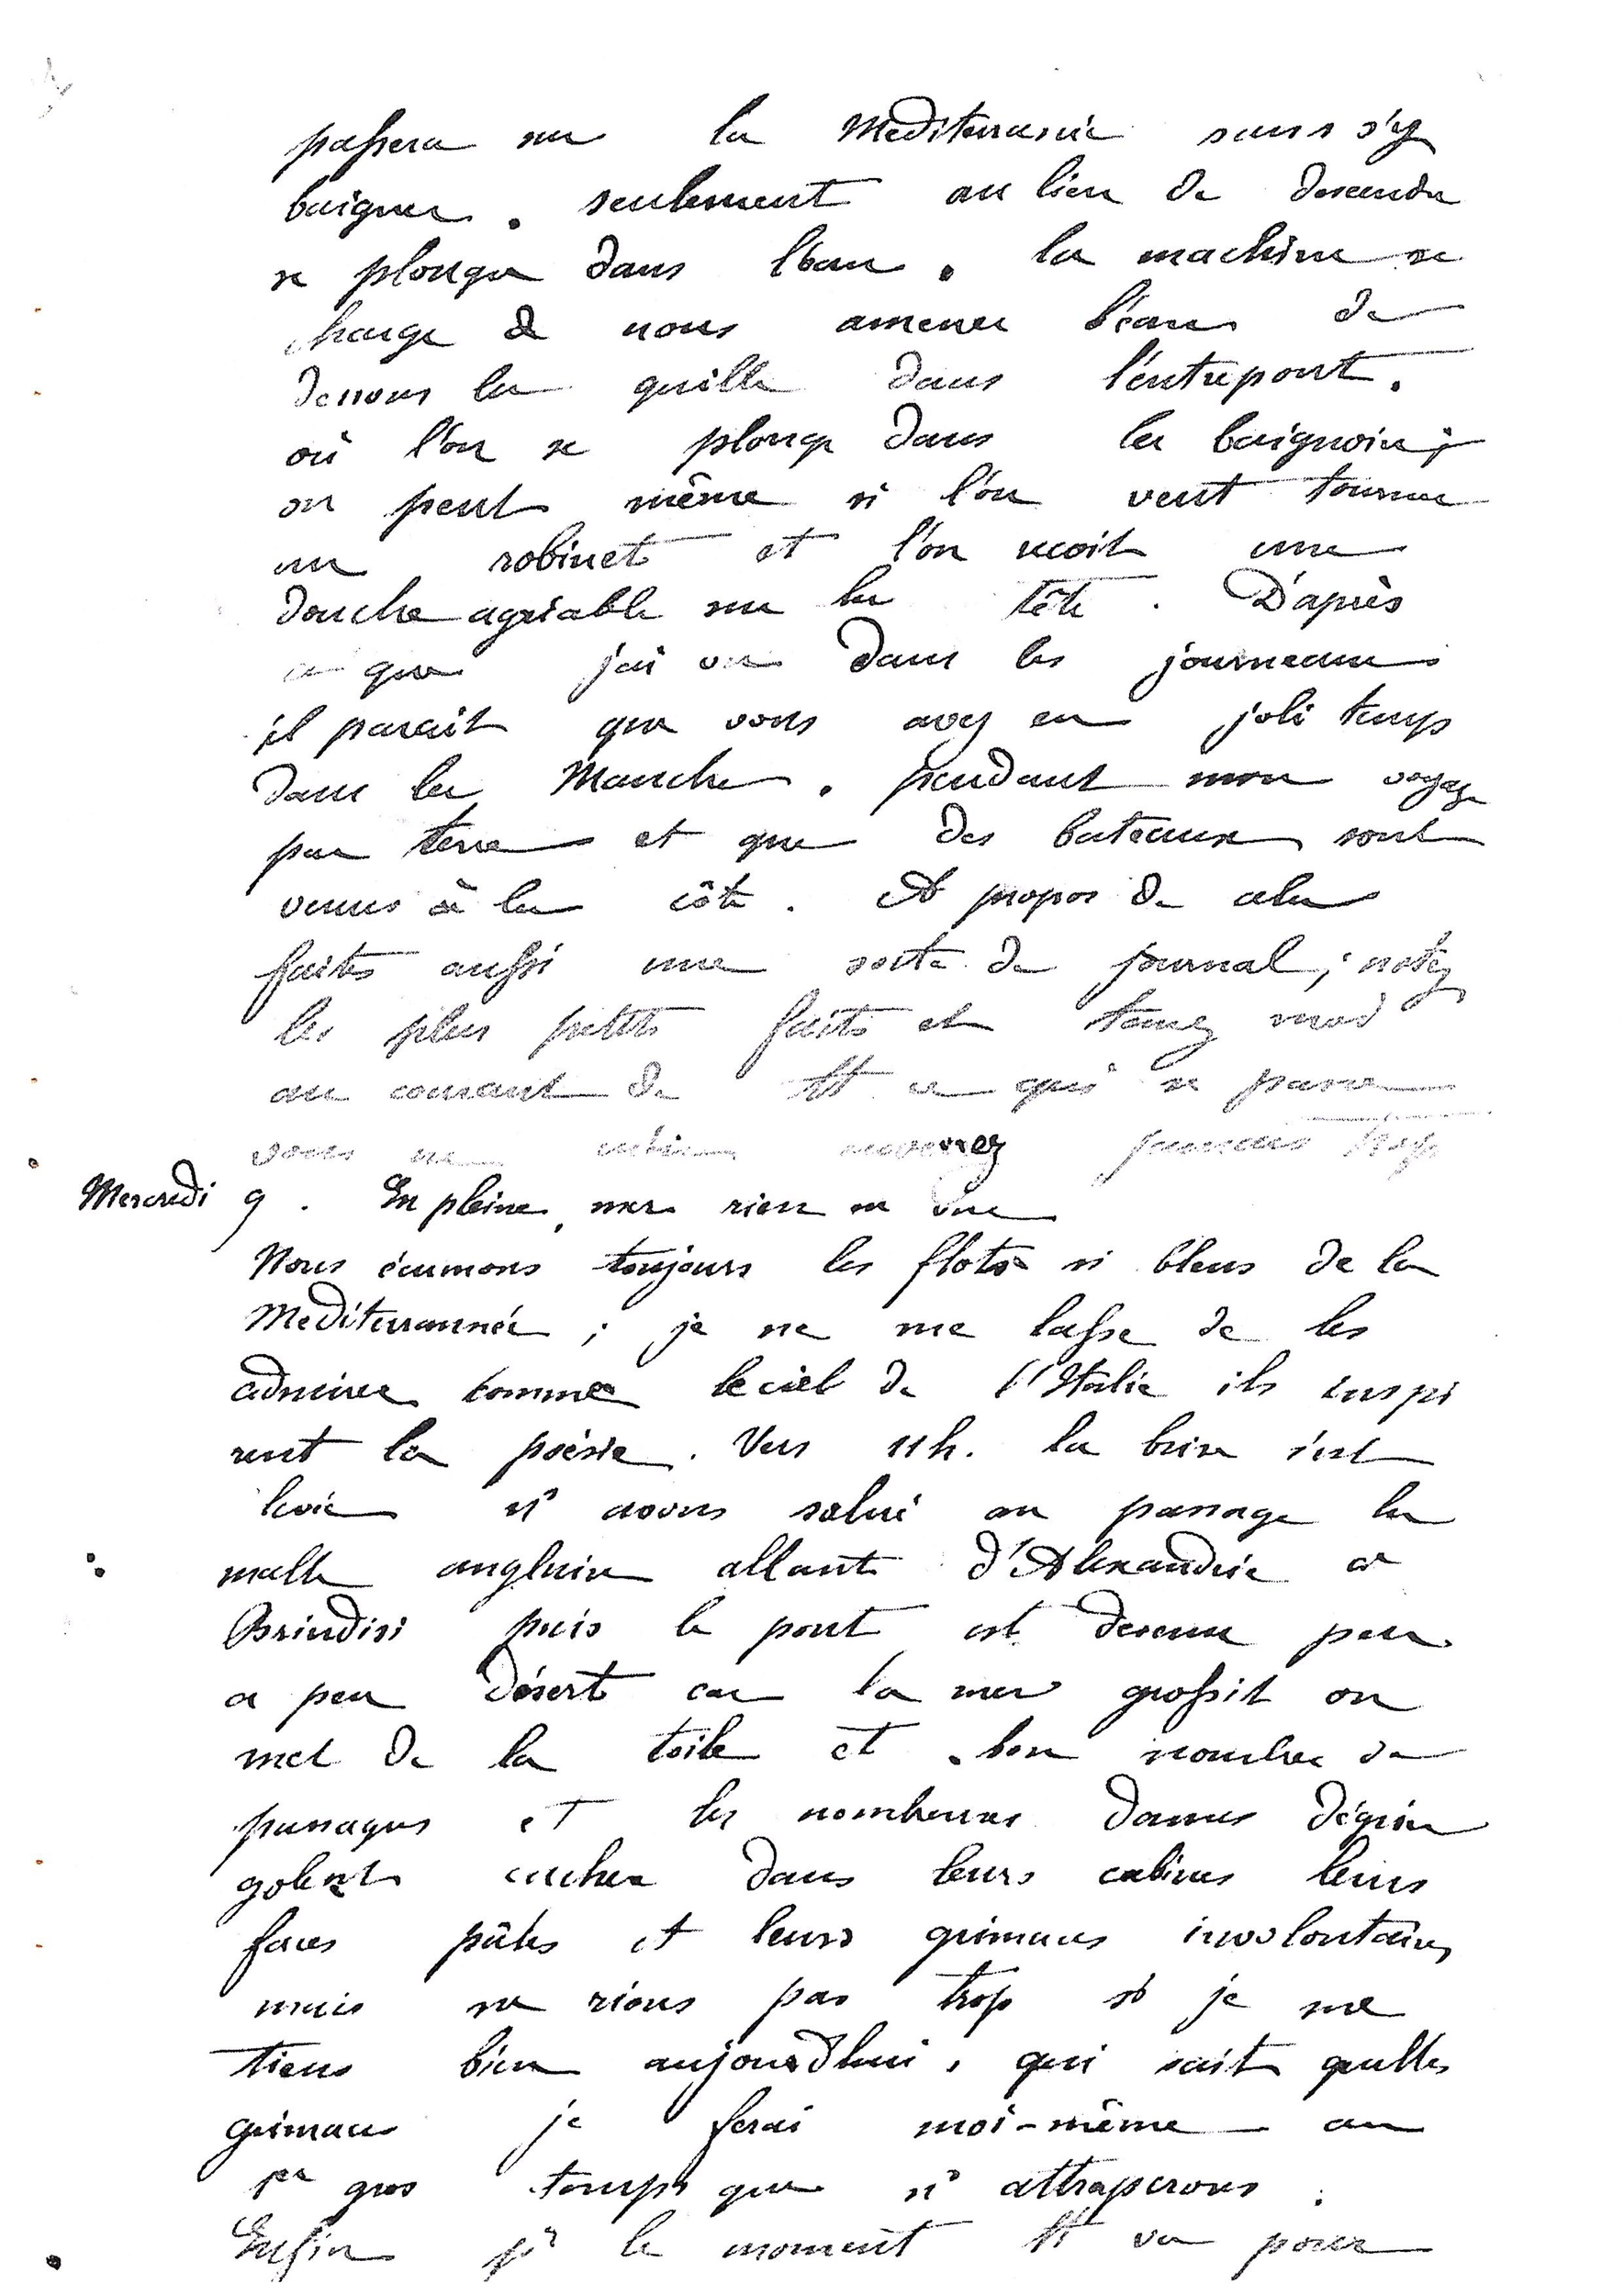 passera sur la Mediterranée sans s'y
baigner. seulement au lieu de descendre
se plonger dans l'eau. la machine se
charge de nous amener l'eau de
dessous la quille dans l'entrepont.
où l'on se plonge dans la baignoire;
on peut même si l'on veut tourner
un robinet et l'on recoit une
douche agréable sur la tête. D'après
ce que j'ai vu dans les journeaux
il parait que vous avez eu joli temps
dans la Manche. pendant mon voyage
par terre et que des bateaux sont
venus à la côte. A propos de cela
faites aussi une sorte de journal; notez
les plus petits faits et tenez moi
au courant de tt ce qui se passe
vous ne jamais trop
Mercredi 9. En pleine mer rien en vue
Nous écumons toujours les flots si bleus de la
Mediterrannée; je ne me lasse de les
admirer comme le ciel de l'Italie ils inspi
rent la poésie. Vers 11h. la brise s'est
levée ns avons salué au passage la
malle anglaise allant d'Alexandrie a
Brindisi puis le pont est devenu peu
a peu désert car la mer grossit on
met de la toile et bon nombre de
passagers et les nombreuses dames dégrin
golent cacher dans leurs cabines leurs
faces pâles et leurs grimaces involontaires
mais ne rions pas trop si je me
tiens bien aujourd'hui, qui sait quelles
grimaces je ferai moi-même au
1er gros temps que ns attraperons.
Enfin pr le moment tt va pour